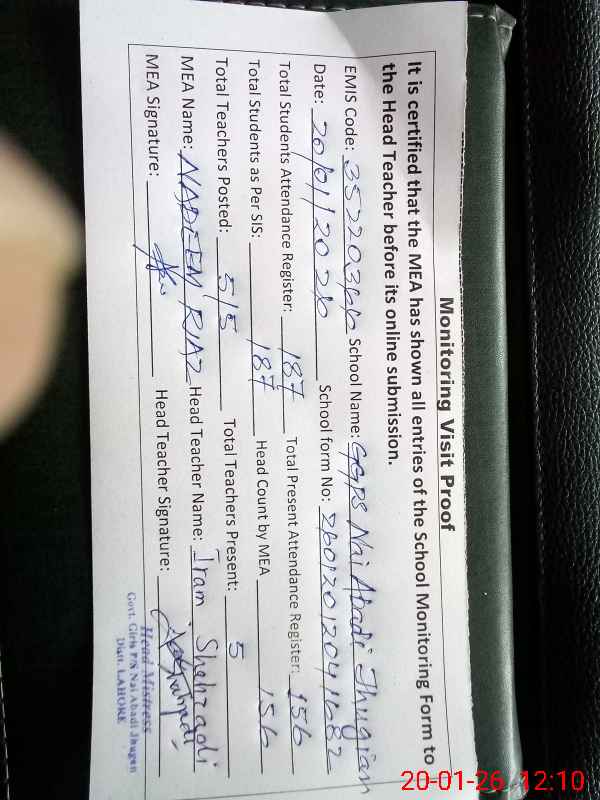 Monitoring Visit Proof
It is certified that the MEA has shown all entries of the School Monitoring Form to
the Head Teacher before its online submission.
EMIS Code: School Name: GGPS Nai Abadi Jhugian
Date: 20/01/2026 School form No:
Total Students Attendance Register: 187 Total Present Attendance Register: 156
Total Students as Per SIS: 187 Head Count by MEA 156
Total Teachers Posted: 5/5 Total Teachers Present: 5
MEA Name: NADEEM RIAZ Head Teacher Name: Iram Shehzadi
MEA Signature: Head Teacher Signature:
Head Mistress
Govt. Girls P/S Nai Abadi Jhugian
Distt. LAHORE
20-01-26 12:10